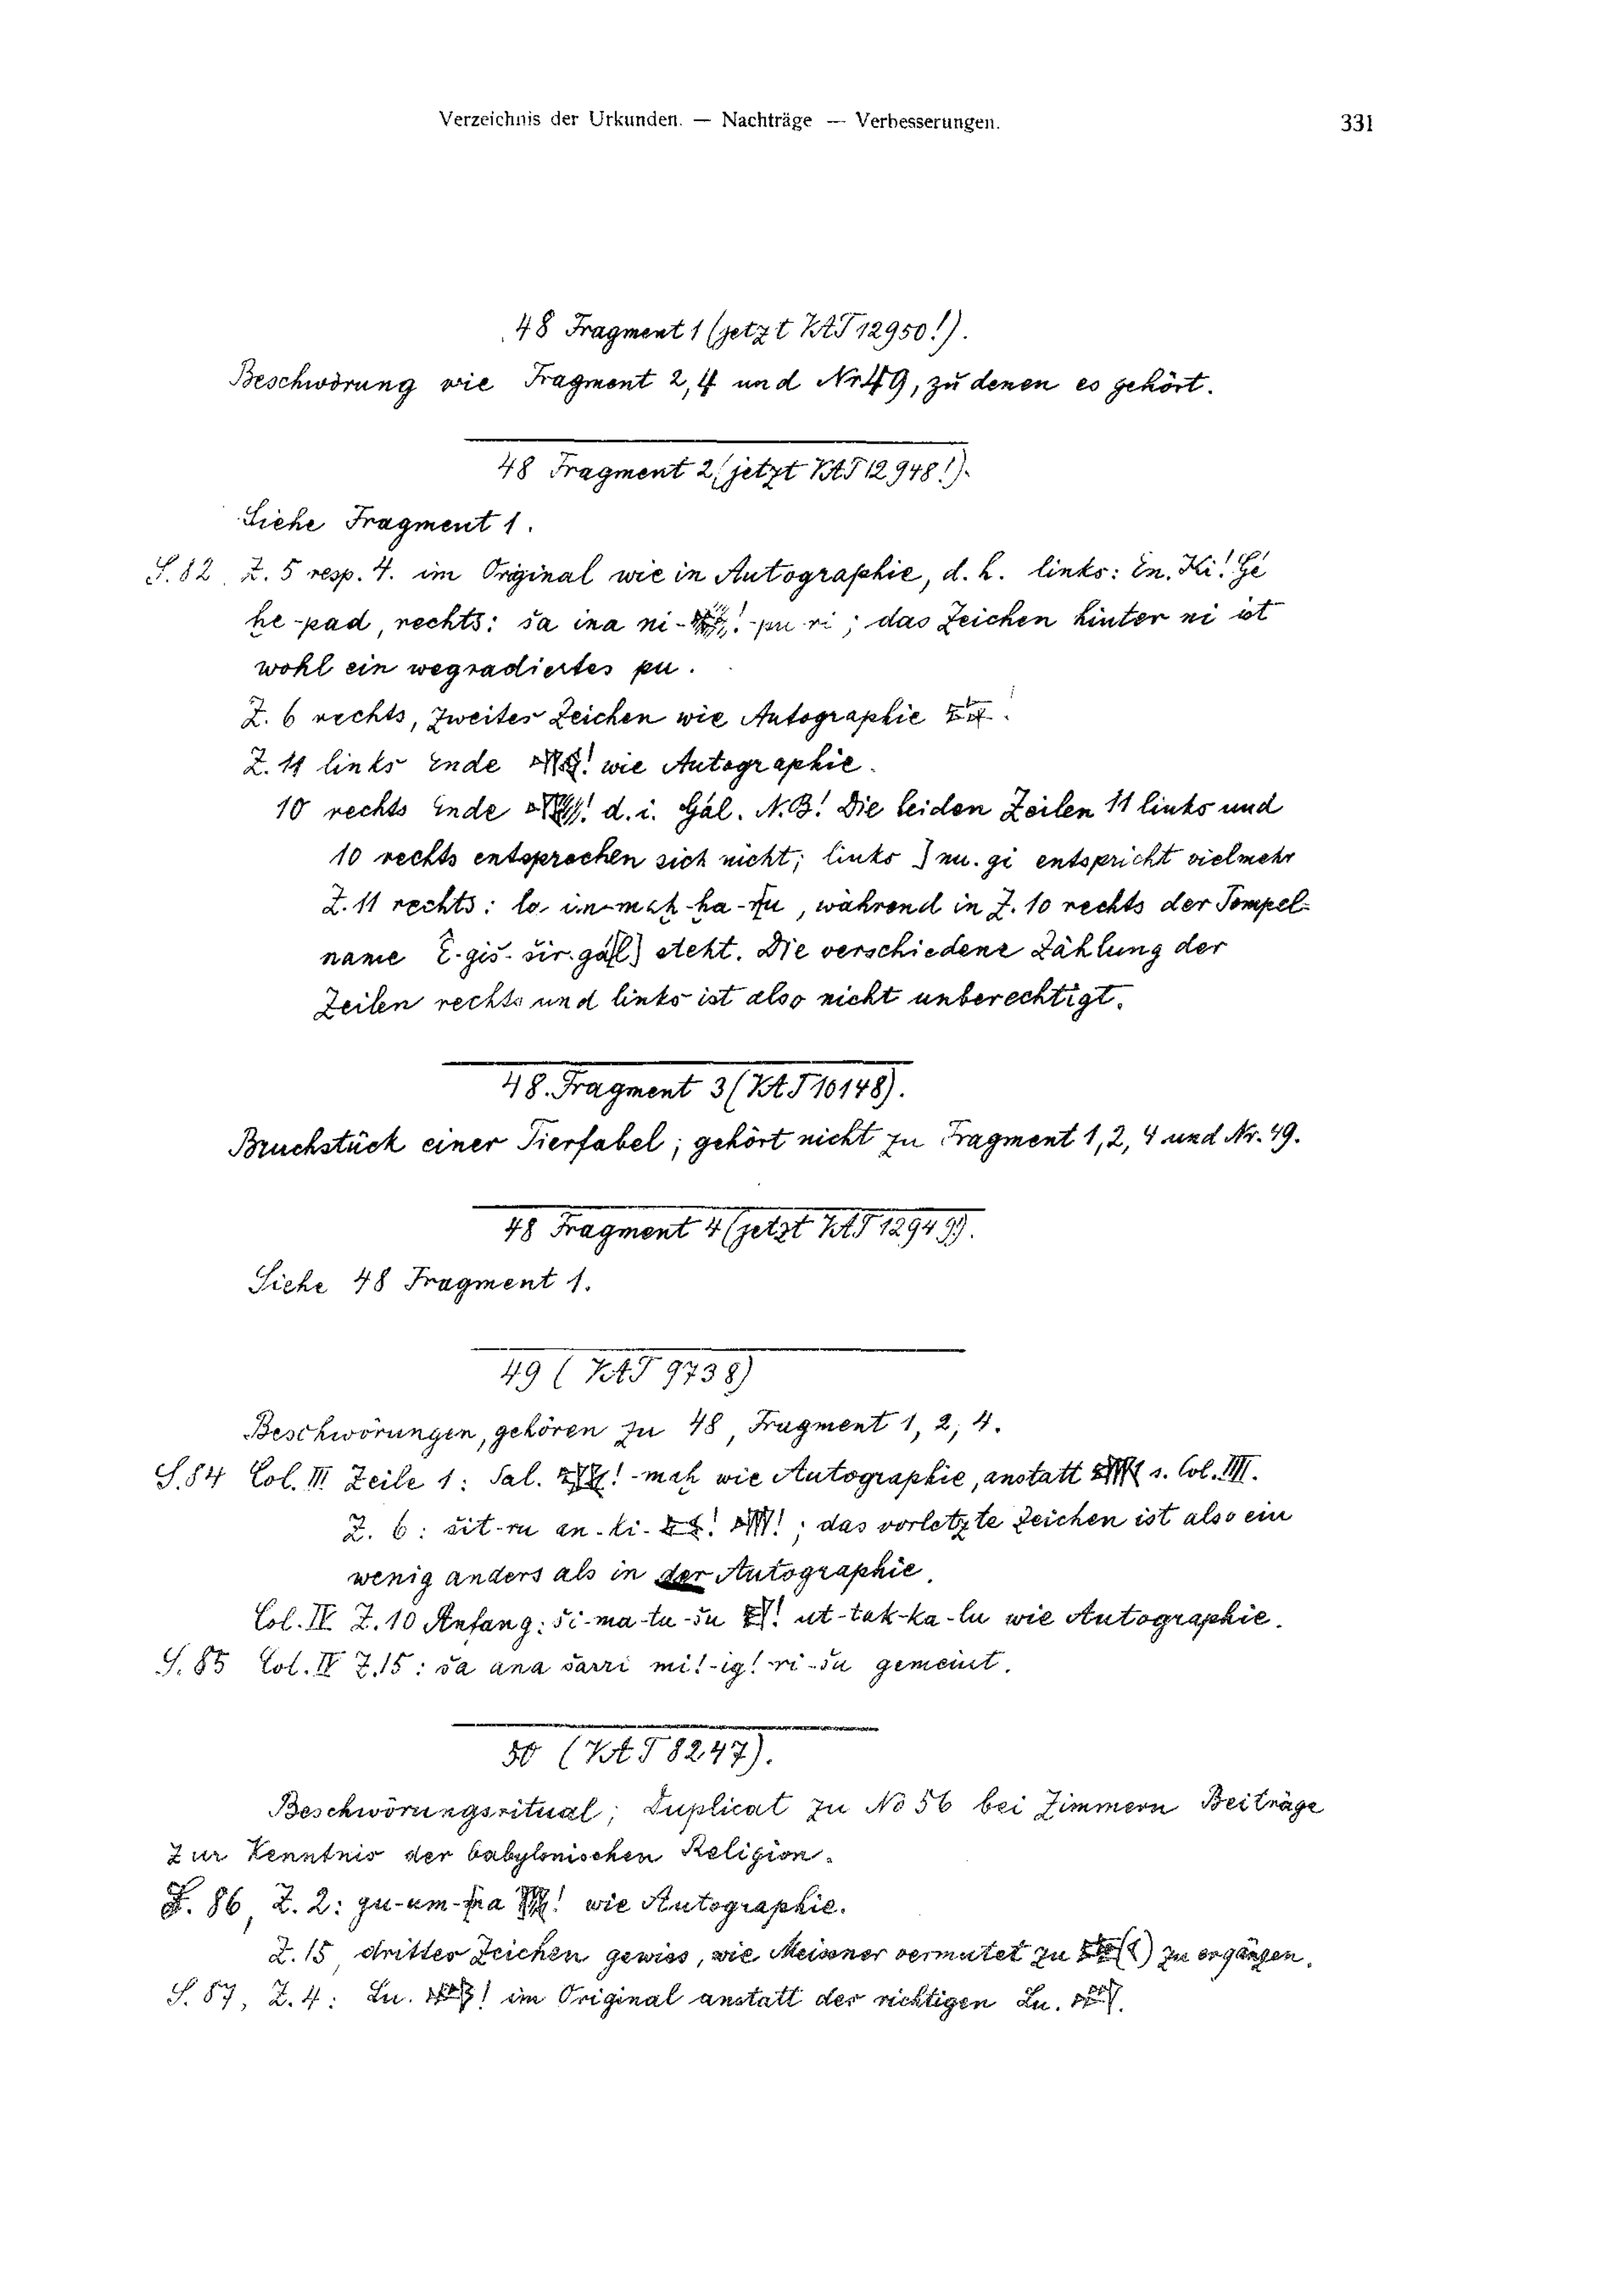 Verzeichnis der Urkunden. — Nachträge — Verbesserungen. 331
48 Fragment 1 (jetzt VAT 12950!).
Beschwörung wie Fragment 2, 4 und Nr. 49, zu denen es gehört.
48 Fragment 2 (jetzt VAT 12948!).
Siehe Fragment 1.
S. 82. Z. 5 resp. 4. im Original wie in Autographie, d. h. links: En. Ki! Gé
ḫe-pad, rechts: ša ina ni- ! -pu-ri; das Zeichen hinter ni ist
wohl ein wegradiertes pu.
Z. 6 rechts, zweites Zeichen wie Autographie !
Z. 11 links Ende ! wie Autographie.
10 rechts Ende ! d. i. Gál. N.B! Die beiden Zeilen 11 links und
10 rechts entsprechen sich nicht; links ] nu. gi entspricht vielmehr
Z. 11 rechts: la im-maḫ-ḫa-ru, während in Z. 10 rechts der Tempel-
name É-giš-šir-gál[l] steht. Die verschiedene Zählung der
Zeilen rechts und links ist also nicht unberechtigt.
48. Fragment 3 (VAT 10148).
Bruchstück einer Tierfabel; gehört nicht zu Fragment 1, 2, 4 und Nr. 49.
48 Fragment 4 (jetzt VAT 12949!).
Siehe 48 Fragment 1.
49 (VAT 9738)
Beschwörungen, gehören zu 48, Fragment 1, 2, 4.
S. 84 Col. III Zeile 1: Sal. ! -maḫ wie Autographie, anstatt s. Col. IIII.
Z. 6: šit-ru an-ki- ! ! ; das vorletzte Zeichen ist also ein
wenig anders als in der Autographie.
Col. IV Z. 10 Anfang: ši-ma-tu-šu ! ut-tak-ka-lu wie Autographie.
S. 85 Col. IV Z. 15: ša ana šarri mi!-ig!-ri-šu gemeint.
50 (VAT 8247).
Beschwörungsritual; Duplicat zu No 56 bei Zimmern Beiträge
zur Kenntnis der babylonischen Religion.
S. 86, Z. 2: gu-um-ma ! wie Autographie.
Z. 15, drittes Zeichen gewiss, wie Meissner vermutet zu (?) zu ergänzen.
S. 87, Z. 4: Lu. ! im Original anstatt des richtigen Lu.